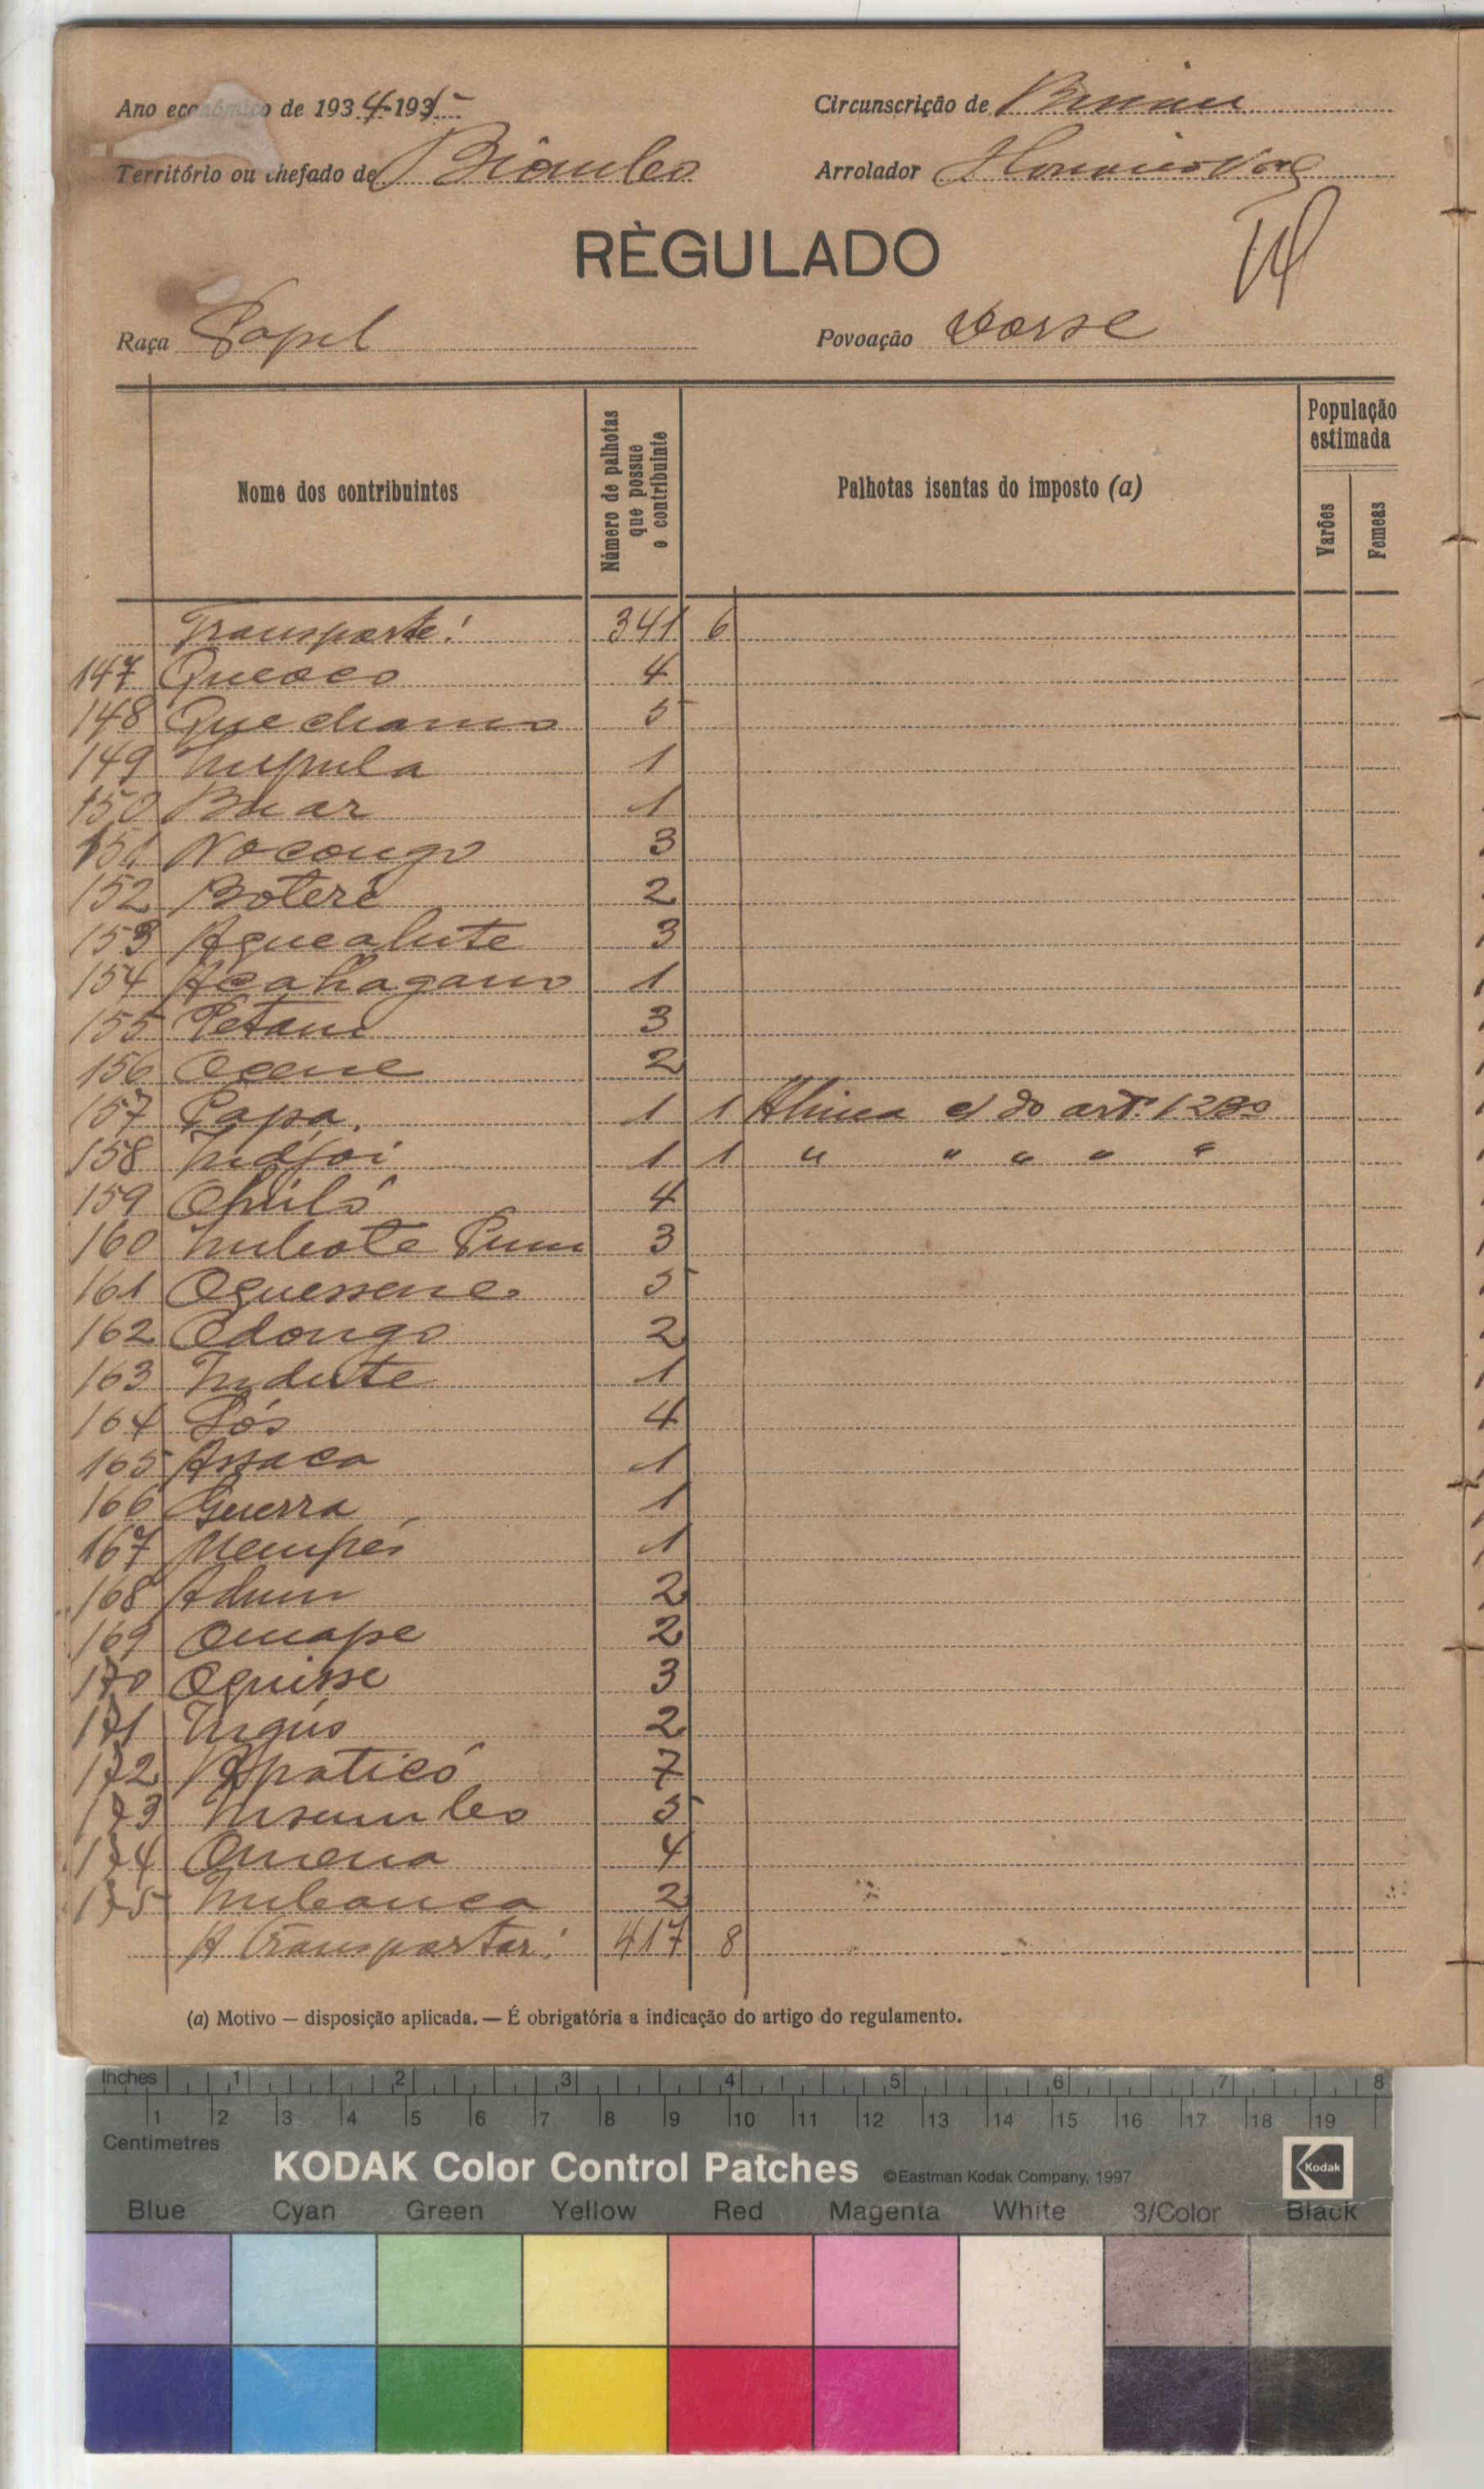 Ano económico de 1934-1935
Circunscrição de Bissau
Território ou chefado de Biombo
Arrolador
RÈGULADO
Raça Papel
Povoação Dorse
Nome dos contribuintes
Número de palhotas que possue o contribuinte
Palhotas isentas do imposto (a)
População estimada
Varões
Femeas
Transporte: 341 6
147 Queoco 4
148 Quechamo 5
149 1
150 Buar 1
151 Nocongo 3
152 Boteré 2
153 Aguealute 3
154 1
155 Petani 3
156 Ocene 2
157 Papa. 1 1 Alinea c) do art. 1280
158 Indjoi 1 1 " " " " "
159 4
160 3
161 Oguessene 5
162 Odongo 2
163 Indute 1
164 Sós 4
165 Assaca 1
166 Guerra 1
167 1
168 2
169 Omape 2
170 Oguisse 3
171 2
172 Apaticó 7
173 5
174 4
175 2
A transportar: 417 8
(a) Motivo — disposição aplicada. — É obrigatória a indicação do artigo do regulamento.
Inches 1 2 3 4 5 6 7 8
1 2 3 4 5 6 7 8 9 10 11 12 13 14 15 16 17 18 19
Centimetres
KODAK Color Control Patches ©Eastman Kodak Company, 1997 Kodak
Blue Cyan Green Yellow Red Magenta White 3/Color Black